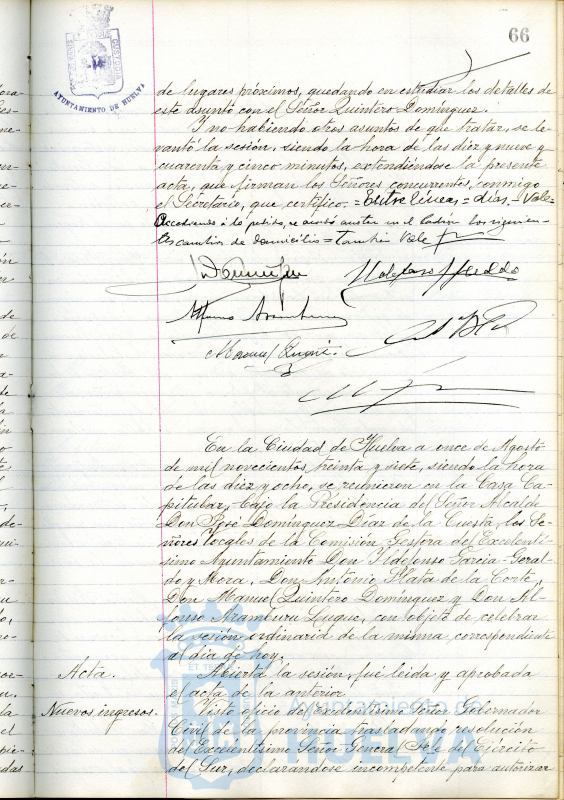 66
AYUNTAMIENTO DE HUELVA
de lugares próximos, quedando en estudiar los detalles de
este asunto con el Señor Quintero Domínguez.
Y no habiendo otros asuntos de que tratar, se le-
vantó la sesión, siendo la hora de las diez y nueve y
cuarenta y cinco minutos, extendiéndose la presente
acta, que firman los Señores concurrentes, conmigo
el Secretario, que certifico. = Entre líneas = días, = Vale =
Accediendo a lo pedido, se
cambios de domicilio = También Vale
Manuel
En la Ciudad de Huelva a once de Agosto
de mil novecientos treinta y siete, siendo la hora
de las diez y ocho, se reunieron en la Casa Ca-
pitular, bajo la Presidencia del Señor Alcalde
Don José Domínguez Díaz de la Cuesta, los Se-
ñores Vocales de la Comisión Gestora del Excelentí-
simo Ayuntamiento Don Ildefonso García-Geral-
do y Mora, Don Antonio Plata de la Corte,
Don Manuel Quintero Domínguez y Don Al-
fonso Aramburu Luque, con objeto de celebrar
la sesión ordinaria de la misma correspondiente
al día de hoy.
Acta. Abierta la sesión, fué leida y aprobada
el acta de la anterior.
Nuevos ingresos. Visto oficio del Excelentísimo Señor Gobernador
Civil de la provincia trasladando resolución
del Excelentísimo Señor General Jefe del Ejército
del Sur, declarandose incompetente para autorizar
Ayuntamiento de
HUELVA